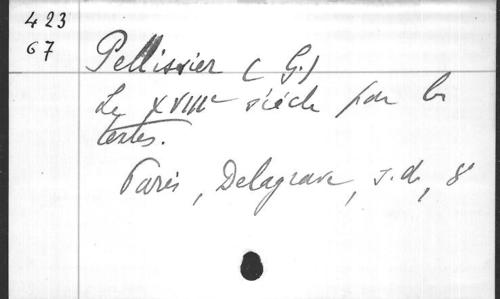 423
67
Pellissier (G.)
Le XVIIIe siècle par les
textes.
Paris, Delagrave, s.d., 8°